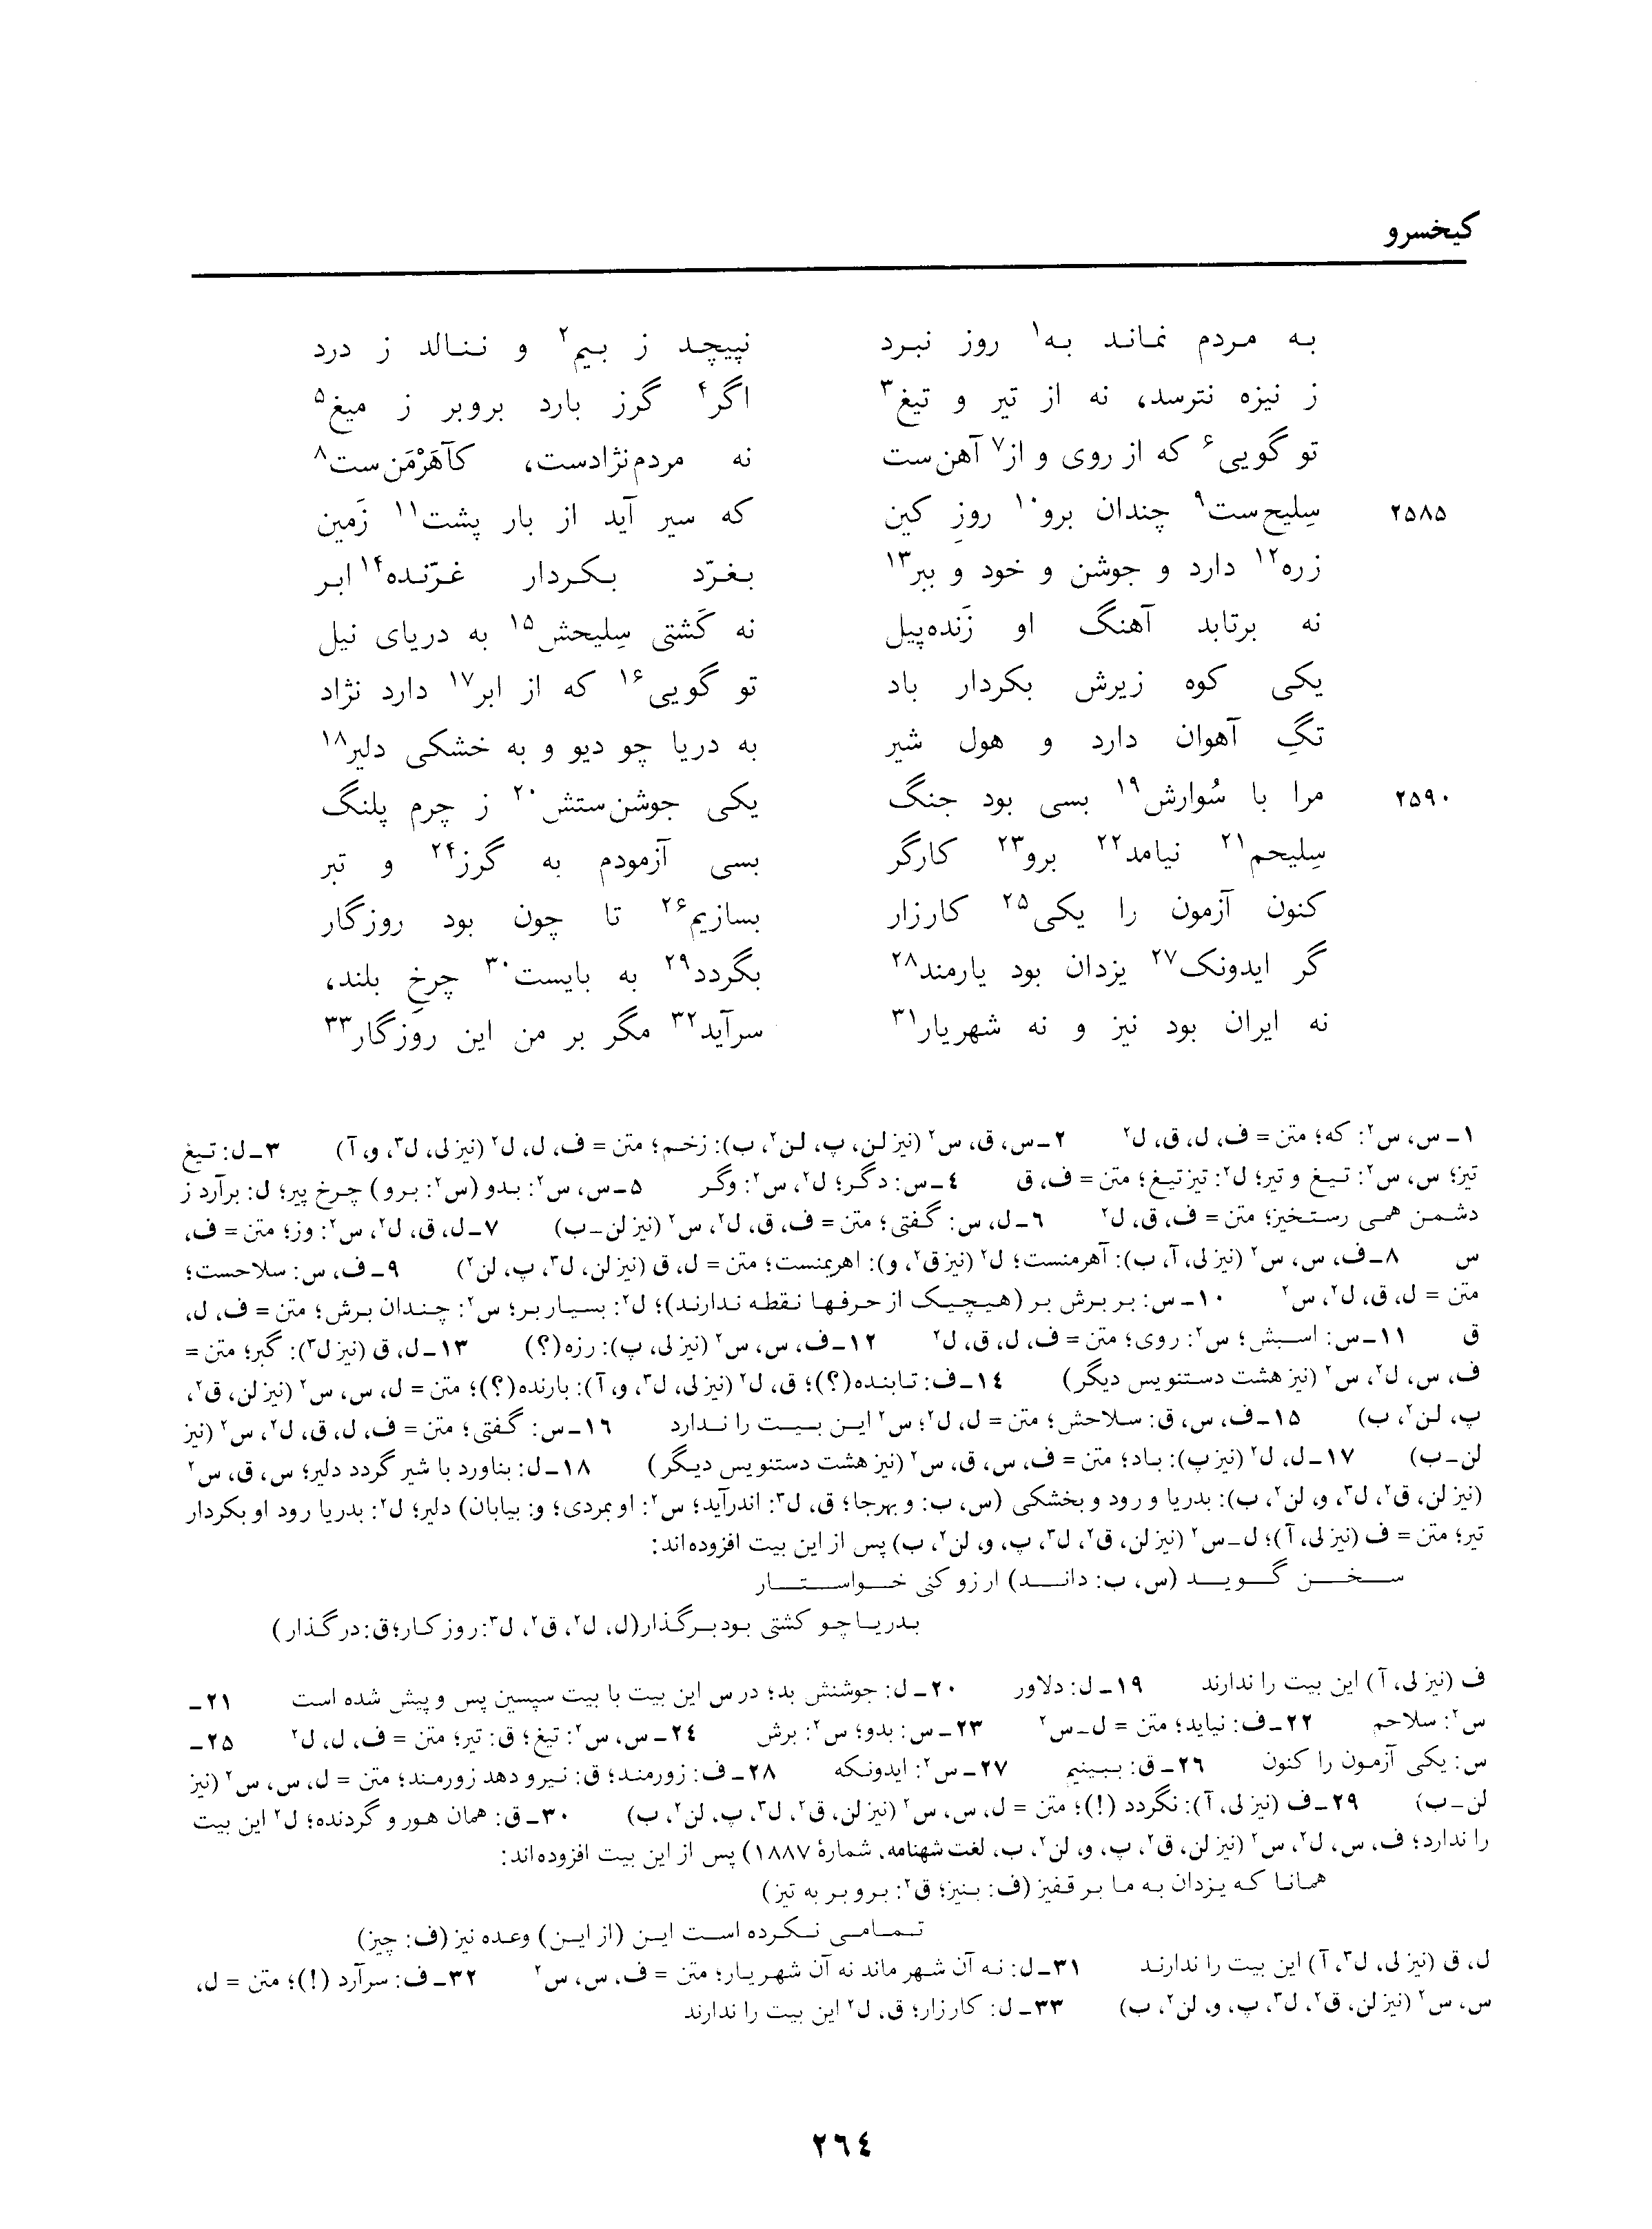 کیخسرو
به مردم نماند به۱ روز نبرد    نپیچد ز بیم۲ و ننالد ز درد
ز نیزه نترسد، نه از تیر و تیغ۳    اگر۴ گرز بارد بروبر ز میغ۵
تو گویی۶ که از روی و از۷ آهن‌ست    نه مردم‌نژادست، کآهَرْمَن‌ست۸
۲۵۸۵    سِلیح‌ست۹ چندان برو۱۰ روزِ کین    که سیر آید از بار پشت۱۱ زَمین
زره۱۲ دارد و جوشن و خود و ببر۱۳    بغرّد بکردار غرّنده۱۴ ابر
نه برتابد آهنگ او زَنده‌پیل    نه کَشتی سِلیحش۱۵ به دریای نیل
یکی کوه زیرش بکردار باد    تو گویی۱۶ که از ابر۱۷ دارد نژاد
تگِ آهوان دارد و هول شیر    به دریا چو دیو و به خشکی دلیر۱۸
۲۵۹۰    مرا با سُوارش۱۹ بسی بود جنگ    یکی جوشن‌ستش۲۰ ز چرم پلنگ
سِلیحم۲۱ نیامد۲۲ برو۲۳ کارگر    بسی آزمودم به گرز۲۴ و تبر
کنون آزمون را یکی۲۵ کارزار    بسازیم۲۶ تا چون بود روزگار
گر ایدونک۲۷ یزدان بود یارمند۲۸    بگردد۲۹ به بایست۳۰ چرخِ بلند،
نه ایران بود نیز و نه شهریار۳۱    سرآید۳۲ مگر بر من این روزگار۳۳
۱ـ س، س۲: که؛ متن = ف، ل، ق، ل۲    ۲ـ س، ق، س۲ (نیز لن، پ، لن۲، ب): زخم؛ متن = ف، ل، ل۲ (نیز لی، ل۳، و، آ)    ۳ـ ل: تیغ
تیز؛ س، س۲: تیغ و تیر؛ ل۲: تیز تیغ؛ متن = ف، ق    ٤ـ س: دگر؛ ل۲، س۲: وگر    ۵ـ س، س۲: بدو (س۲: برو) چرخ پیر؛ ل: برآرد ز
دشمن همی رستخیز؛ متن = ف، ق، ل۲    ۶ـ ل، س: گفتی؛ متن = ف، ق، ل۲، س۲ (نیز لن ـ ب)    ۷ـ ل، ق، ل۲، س۲: وز؛ متن = ف،
س    ۸ـ ف، س، س۲ (نیز لی، آ، ب): آهرمنست؛ ل۲ (نیز ق۲، و): اهریمنست؛ متن = ل، ق (نیز لن، ل۳، پ، لن۲)    ۹ـ ف، س: سلاحست؛
متن = ل، ق، ل۲، س۲    ۱۰ـ س: بر برش بر (هیچیک از حرفها نقطه ندارند)؛ ل۲: بسیار بر؛ س۲: چندان برش؛ متن = ف، ل،
ق    ۱۱ـ س: اسبش؛ س۲: روی؛ متن = ف، ل، ق، ل۲    ۱۲ـ ف، س، س۲ (نیز لی، پ): رزه(؟)    ۱۳ـ ل، ق (نیز ل۳): گبر؛ متن =
ف، س، ل۲، س۲ (نیز هشت دستنویس دیگر)    ۱٤ـ ف: تابنده(؟)؛ ق، ل۲ (نیز لی، ل۳، و، آ): بارنده(؟)؛ متن = ل، س، س۲ (نیز لن، ق۲،
پ، لن۲، ب)    ۱۵ـ ف، س، ق: سلاحش؛ متن = ل، ل۲؛ س۲ این بیت را ندارد    ۱۶ـ س: گفتی؛ متن = ف، ل، ق، ل۲، س۲ (نیز
لن ـ ب)    ۱۷ـ ل، ل۲ (نیز پ): باد؛ متن = ف، س، ق، س۲ (نیز هشت دستنویس دیگر)    ۱۸ـ ل: بناورد با شیر گردد دلیر؛ س، ق، س۲
(نیز لن، ق۲، ل۳، و، لن۲، ب): بدریا و رود و بخشکی (س، ب: و بهرجا؛ ق، ل۳: اندرآید؛ س۲: او بمردی؛ و: بیابان) دلیر؛ ل۲: بدریا رود او بکردار
تیر؛ متن = ف (نیز لی، آ)؛ ل ـ س۲ (نیز لن، ق۲، ل۳، پ، و، لن۲، ب) پس از این بیت افزوده‌اند:
سخن گوید (س، ب: داند) ار زو کنی خواستار
بدریا چو کشتی بود برگذار (ل، ل۲، ق۲، ل۳: روز کار؛ ق: در گذار)
ف (نیز لی، آ) این بیت را ندارند    ۱۹ـ ل: دلاور    ۲۰ـ ل: جوشنش بد؛ در س این بیت با بیت سپسین پس و پیش شده است    ۲۱ـ
س۲: سلاحم    ۲۲ـ ف: نیاید؛ متن = ل ـ س۲    ۲۳ـ س: بدو؛ س۲: برش    ۲٤ـ س، س۲: تیغ؛ ق: تیر؛ متن = ف، ل، ل۲    ۲۵ـ
س: یکی آزمون را کنون    ۲۶ـ ق: ببینیم    ۲۷ـ س۲: ایدونکه    ۲۸ـ ف: زورمند؛ ق: نیرو دهد زورمند؛ متن = ل، س، س۲ (نیز
لن ـ ب)    ۲۹ـ ف (نیز لی، آ): نگردد (!)؛ متن = ل، س، س۲ (نیز لن، ق۲، ل۳، پ، لن۲، ب)    ۳۰ـ ق: همان هور و گردنده؛ ل۲ این بیت
را ندارد؛ ف، س، ل۲، س۲ (نیز لن، ق۲، پ، و، لن۲، ب، لغت شهنامه، شمارهٔ ۱۸۸۷) پس از این بیت افزوده‌اند:
همانا که یزدان به ما بر قفیز (ف: بنیز؛ ق۲: برو بر به تیز)
تمامی نکرده است این (از این) وعده نیز (ف: چیز)
ل، ق (نیز لی، ل۳، آ) این بیت را ندارند    ۳۱ـ ل: نه آن شهر ماند نه آن شهریار؛ متن = ف، س، س۲    ۳۲ـ ف: سرآرد (!)؛ متن = ل،
س، س۲ (نیز لن، ق۲، ل۳، پ، و، لن۲، ب)    ۳۳ـ ل: کارزار؛ ق، ل۲ این بیت را ندارند
۲٦٤